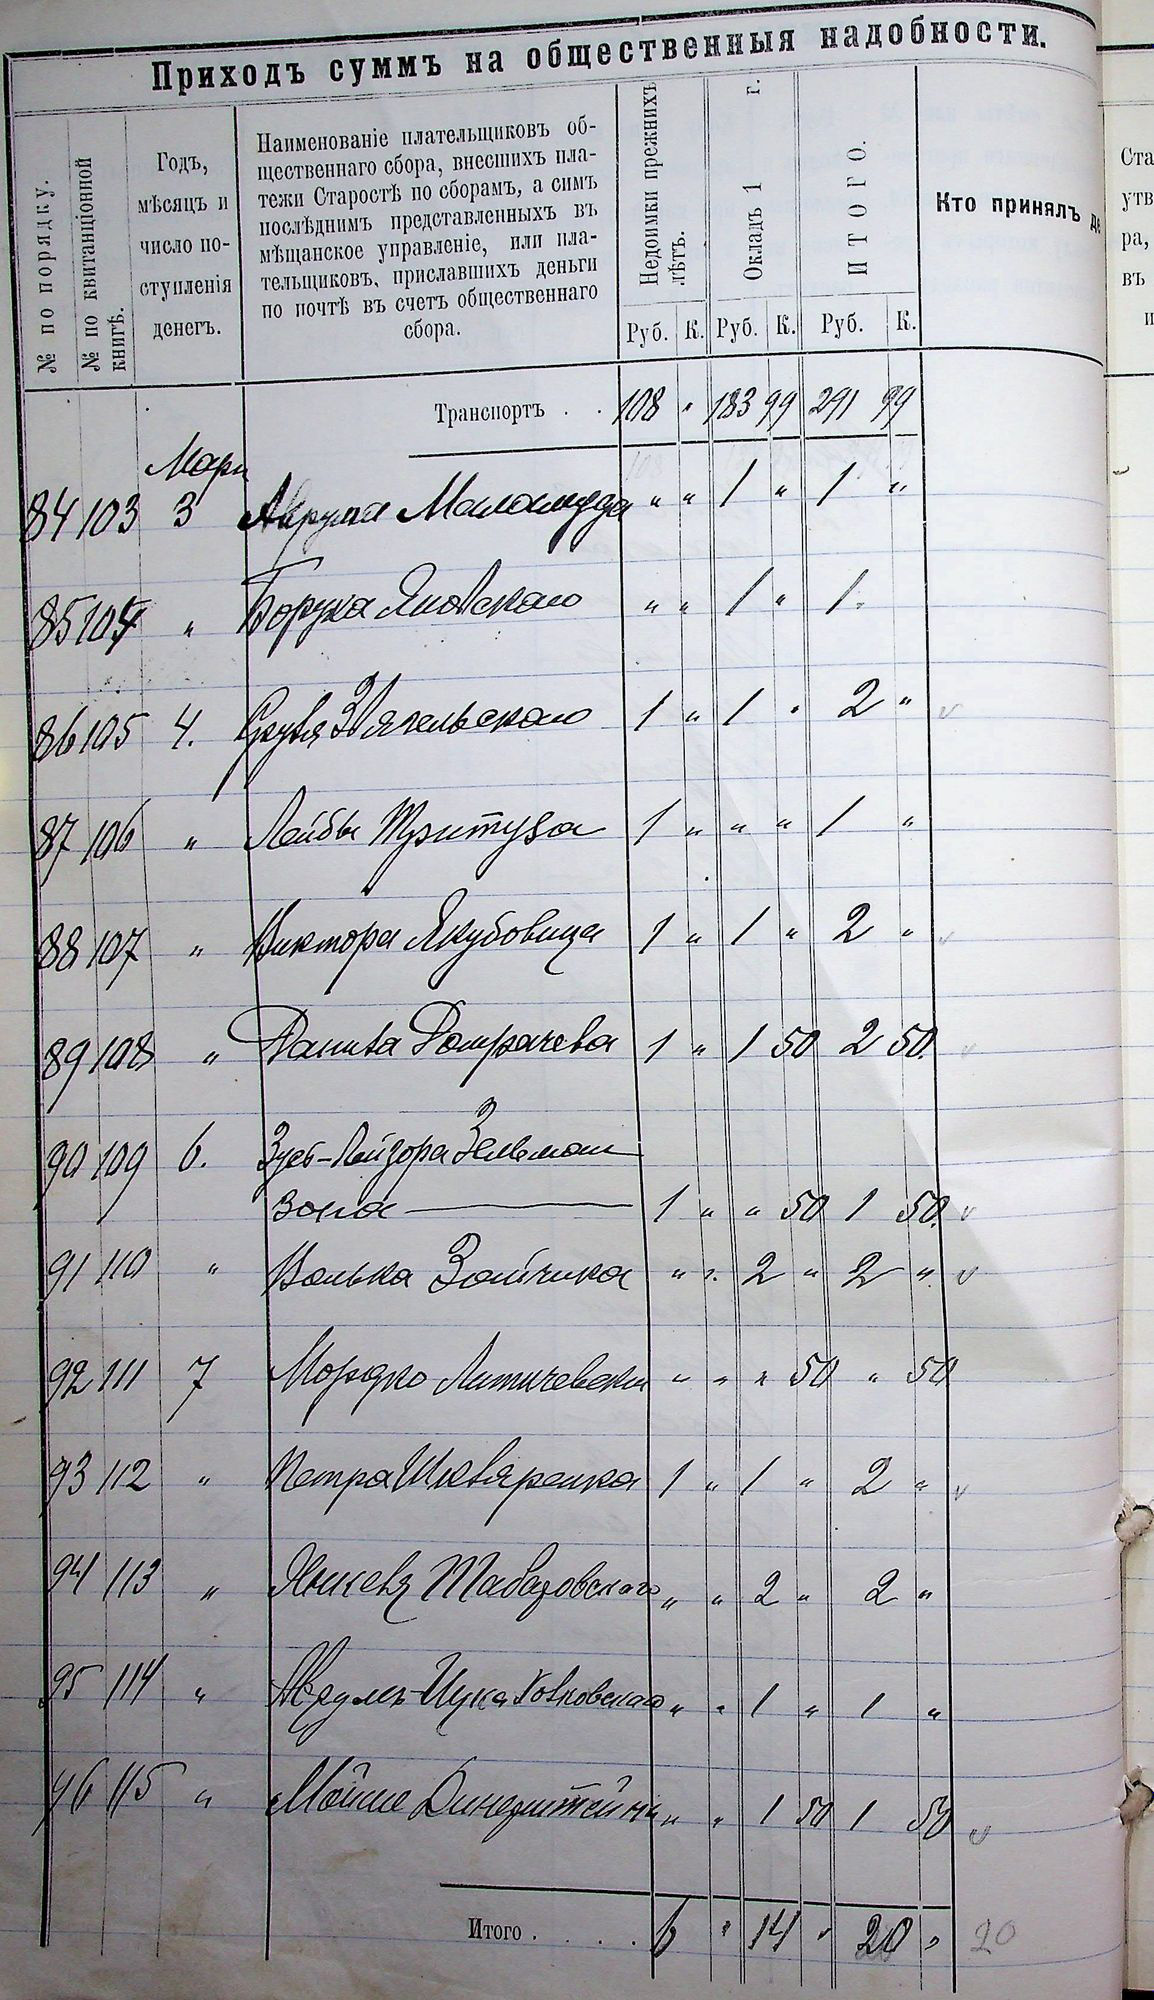 Приходъ суммъ на общественныя надобности.
№ по порядку.
№ по квитанціонной книгѣ.
Годъ,
мѣсяцъ и
число по-
ступленія
денегъ.
Наименованіе плательщиковъ об-
щественнаго сбора, внесшихъ пла-
тежи Старостѣ по сборамъ, а симъ
послѣднимъ представленныхъ въ
мѣщанское управленіе, или пла-
тельщиковъ, приславшихъ деньги
по почтѣ въ счетъ общественнаго
сбора.
Недоимки прежнихъ лѣтъ.
Окладъ 1 г.
ИТОГО.
Кто принялъ де
Руб. К. Руб. К. Руб. К.
Транспортъ . . 108 „ 183 99 291 99
Март
84 103 3 Аврума Маламуда „ „ 1 „ 1 „
85 104 „ Боруха Яновскаго „ „ 1 „ 1 „
86 105 4. Сруля Звягельскаго 1 „ 1 „ 2 „
87 106 „ Лейбы 1 „ „ „ 1 „
88 107 „ Виктора Якубовица 1 „ 1 „ 2 „
89 108 „ Данила Домрачева 1 „ 1 50 2 50
90 109 6. Зусь-Лейзора Зельман
зона 1 „ „ 50 1 50
91 110 „ Волька Зайчика „ „ 2 „ 2 „
92 111 7 Мордко Литичевски „ „ „ 50 „ 50
93 112 „ Петра Шкляренка 1 „ 1 „ 2 „
94 113 „ „ „ 2 „ 2 „
95 114 „ Аврумъ-Ицка „ „ 1 „ 1 „
96 115 „ Мойше Динерштейна „ „ 1 50 1 50
Итого . . . . 6 „ 14 „ 20 „ 20
Ста
утв
ра,
въ
и